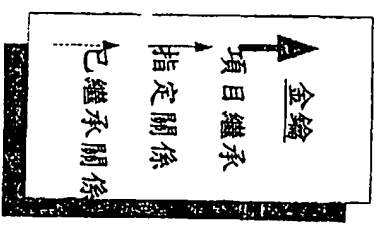 金鑰
項目繼承
指定關係
已繼承關係